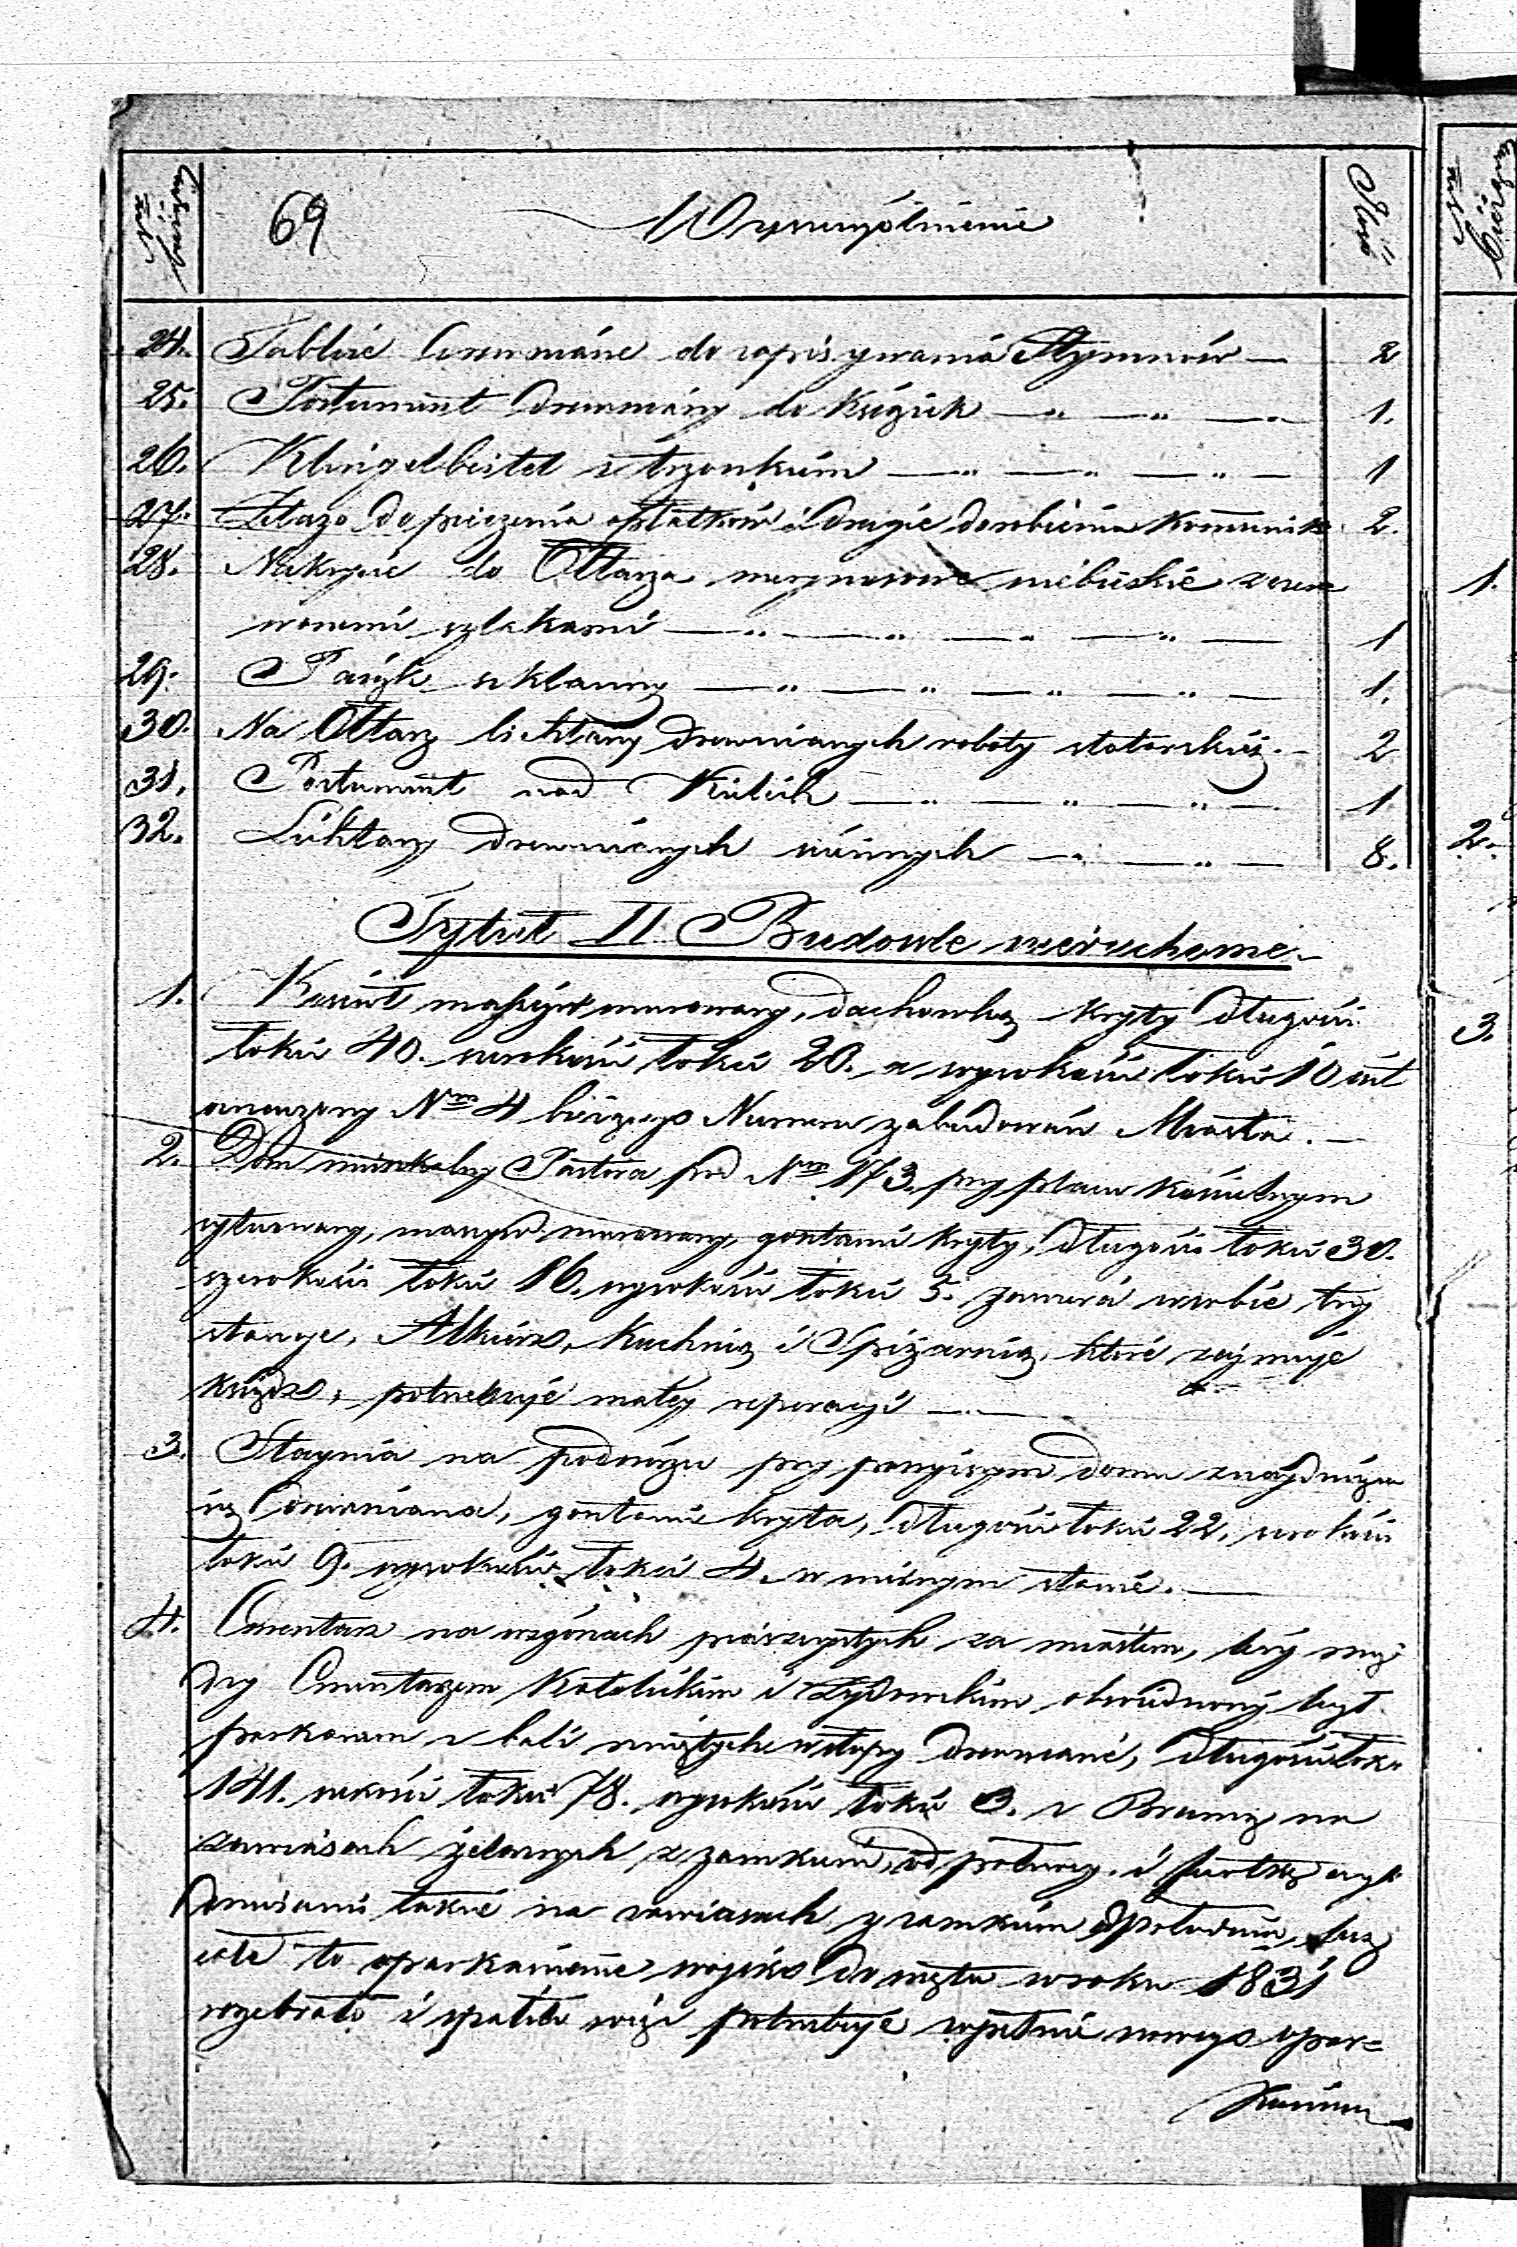 Liczba
69 Wyszczególnienie Ilość
24. Tablice drewniane do zapisywania Hymnów — 2
25. Postument drewniany do Książek — „ — „ — 1.
26. Klingelbeitel z trzonkiem — „ — „ — „ — 1
27. Żelazo do pieczenia opłatków i drugie do robienia Komunik 2.
28. Nakrycie do Ołtarza merynosowe niebieskie z czer
wonemi szlakami — „ — „ — „ — 1
29. Pająk szklanny — „ — „ — „ — „ — 1.
30. Na Ołtarz lichtarzy drewnianych roboty stolarskiej. — 2
31. Postument nad Kielich — „ — „ — „ — 1
32. Lichtarzy drewnianych ściennych — „ — „ — 8.
Tytuł II Budowle nieruchome.
1. Kościół massyw murowany, dachówką kryty długości
łokci 40. szerokości łokci 20. a wysokości łokci 10 jest
oznaczony Nrm 4 bieżącego Numeru zabudowań Miasta. —
2. Dom mieszkalny Pastora pod Nrm 173. przy placu kościelnym
sytuowany, massyw murowany, gontami kryty, długości łokci 30.
szerokości łokci 16. wysokości łokci 5. zawiera w sobie trzy
stancye, Alkierz, Kuchnią i Spiżarnią, które zajmuje
ksiądz, potrzebuje małej reperacyi —
3. Staynia na podwórzu przy powyższym domu znajdująca
się drewniana, gontami kryta, długości łokci 22, szerokości
łokci 9. wysokości łokci 4. w miernym stanie. —
4. Cmentarz na wzgórach piaszczystych za miastem, leży mię
dzy Cmentarzem Katolickim i Żydowskim obwiedziony był
parkanem z bali rzniętych w słupy drewniane, długości łokci
141. szerokości łokci 78. wysokości łokci 3. z Bramą na
zawiasach żelaznych z zamkiem, od północy i furtką
drzwiami także na zawiasach z zamkiem od południa, lecz
całe to oparkanienie wojsko do szczętu w roku 1831
rozebrało i spaliło więc potrzebuje zupełnie nowego opar=
kanienia
1.
2.
3.